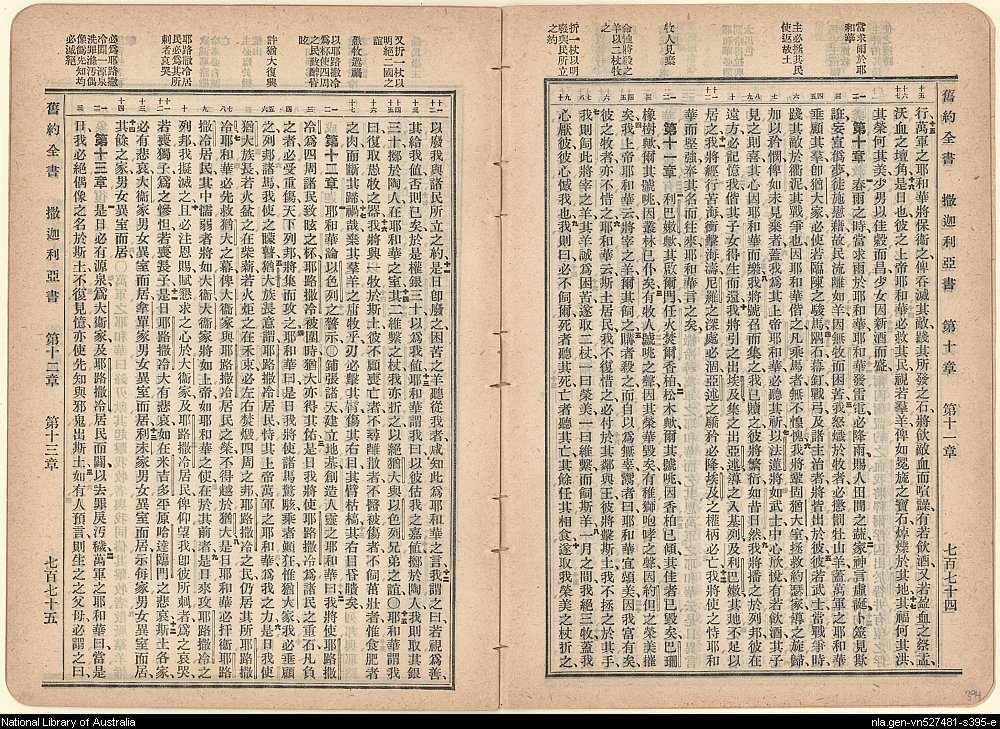 當求雨於耶
和華
主必拯其民
使返故土
牧人見棄
命撒將殺之
羊以二杖牧
折一杖以明
廢與民所立
之約
舊約全書 撒迦利亞書 第十章 第十一章 七百七十四
行萬軍之耶和華將保衛之俾吞滅其敵踐其所發之石將飲敵血而喧譟有若飲酒又若盈血之祭盂
沃血之壇角是日也彼之上帝耶和華必救其民視若羣羊俾如冕旒之寶石焯爍於其地其福何其洪
其榮何其美少男以佳穀而昌少女因新酒而盛
第十章 春雨之時當求雨於耶和華耶和華發雷電必降甘雨賜人田間之蔬家神言虛誕卜筮見欺
誑妄宣僞夢徒施慰藉故民流離如羊因無牧而困苦我怒熾於牧者必懲罰牡山羊蓋萬軍之耶和華
垂顧其羣卽猶大家必使若臨陳之駿馬隅石幕釘戰弓及諸主治者將皆出於彼彼若武士當戰爭時
踐其敵於衢泥其戰爭也因耶和華偕之凡乘馬者無不惶愧我將鞏固猶大室拯救約瑟家導之旋歸
加以矜憫俾如未見棄者蓋我爲其上帝耶和華必聽其祈以法蓮將如武士中心欣悅有若飲酒其子
見之則喜其心因耶和華而樂我將號召而集之我已贖之彼將繁衍如昔日然我將播之於列邦彼在
遠方必記憶我偕其子女得生而還我將引之出埃及集之出亞述導之入基列及利巴嫩其地不足以
居之我將經行苦海衝擊海濤尼羅之深處必涸亞述之驕矜必降埃及之權柄必亡我將使之恃耶和
華而堅強奉其名而往來耶和華言之矣
第十一章 利巴嫩歟其啟爾門任火焚爾香柏松木歟爾其號咷因香柏已傾其佳者已毀矣巴珊
橡樹歟爾其號咷因叢林已仆矣有牧人號咷之聲因其榮華毀矣有稚獅咆哮之聲因約但之榮美摧
矣我上帝耶和華云將宰之羊爾其飼之購者殺之而自以爲無辜鬻者曰耶和華宜頌美因我富有矣
彼之牧者亦不惜之耶和華云斯土居民我不復惜之必付於其鄰與王彼將擊斯土我不拯之於其手
我則飼此將宰之羊其羊誠爲困苦遂取二杖一曰榮美一曰維繫以飼斯羊一月之間我絕三牧蓋我
心厭彼彼心憾我也我則曰必不飼爾死者聽其死亡者聽其亡其餘任其相食遂取我榮美之杖折之
又折一杖以
明絕二國之
誼
愚牧遘禍
以耶路撒冷
爲杯使四周
之民致醉昏
眩
許猶大復興
耶路撒冷居
民必爲其所
刺者哀哭
必爲耶路撒
冷闢一源泉
洗罪滌汚偶
像僞先知均
必滅絕
舊約全書 撒迦利亞書 第十二章 第十三章 七百七十五
以廢我與諸民所立之約是日卽廢之困苦之羊聽從我者咸知此爲耶和華之言我謂之曰若視爲善
給我値否則已矣於是權銀三十以爲我値耶和華謂我曰以彼估我之嘉値擲於陶人我則取其銀
三十擲於陶人在耶和華之室其二維繫之杖我亦折之以絕猶大與以色列兄弟之誼耶和華謂我
曰復取愚牧之器我將興一牧於斯土彼不顧喪亡者不尋離散者不醫被傷者不飼茁壯者惟食肥者
之肉而斷其蹄禍哉棄其羣羊之庸牧乎刃必擊其臂傷其右目其臂枯槁其右目昏瞶矣
第十二章 耶和華論以色列之警示鋪張諸天建立地基創造人靈之耶和華曰我將使耶路撒
冷爲四周諸民致眩之杯耶路撒冷被圍時猶大亦得其佑是日我將使耶路撒冷爲諸民之重石凡負
之者必受重傷天下列邦將集而攻之耶和華曰是日我將使諸馬驚駭乘者顚狂惟猶大家我必垂顧
之列邦諸馬我使之矇瞽猶大族長意謂耶路撒冷居民恃其上帝萬軍之耶和華爲我之力是日我使
猶大族長若火盆之在柴薪若火炬之在禾束必左右焚燬四周之邦耶路撒冷之民仍居其所耶路撒
冷耶和華必先救猶大之幕俾大衛家與耶路撒冷居民之榮不得越於猶大是日耶和華必扞衛耶路
撒冷居民其中懦弱者將如大衛大衛家將如上帝如耶和華之使在於其前者是日來攻耶路撒冷之
列邦我擬滅之且必注恩賜賦懇求之心於大衛家及耶路撒冷居民俾仰望我卽彼所刺者爲之哀哭
若喪獨子爲之慘怛若喪長子是日耶路撒冷大有悲哀如在米吉多平原哈達臨門之悲哀斯土各家
必有悲哀大衛家男女異室而居拿單家男女異室而居利未家男女異室而居示每家男女異室而居
其餘之家男女異室而居
第十三章 是日必有源泉爲大衛家及耶路撒冷居民而闢以去罪戾汚穢萬軍之耶和華曰當是
日我必絕偶像之名於斯土不復見憶亦使先知與邪鬼出斯土如有人預言則生之之父母必謂之曰
394
National Library of Australia
nla.gen-vn527481-s395-e